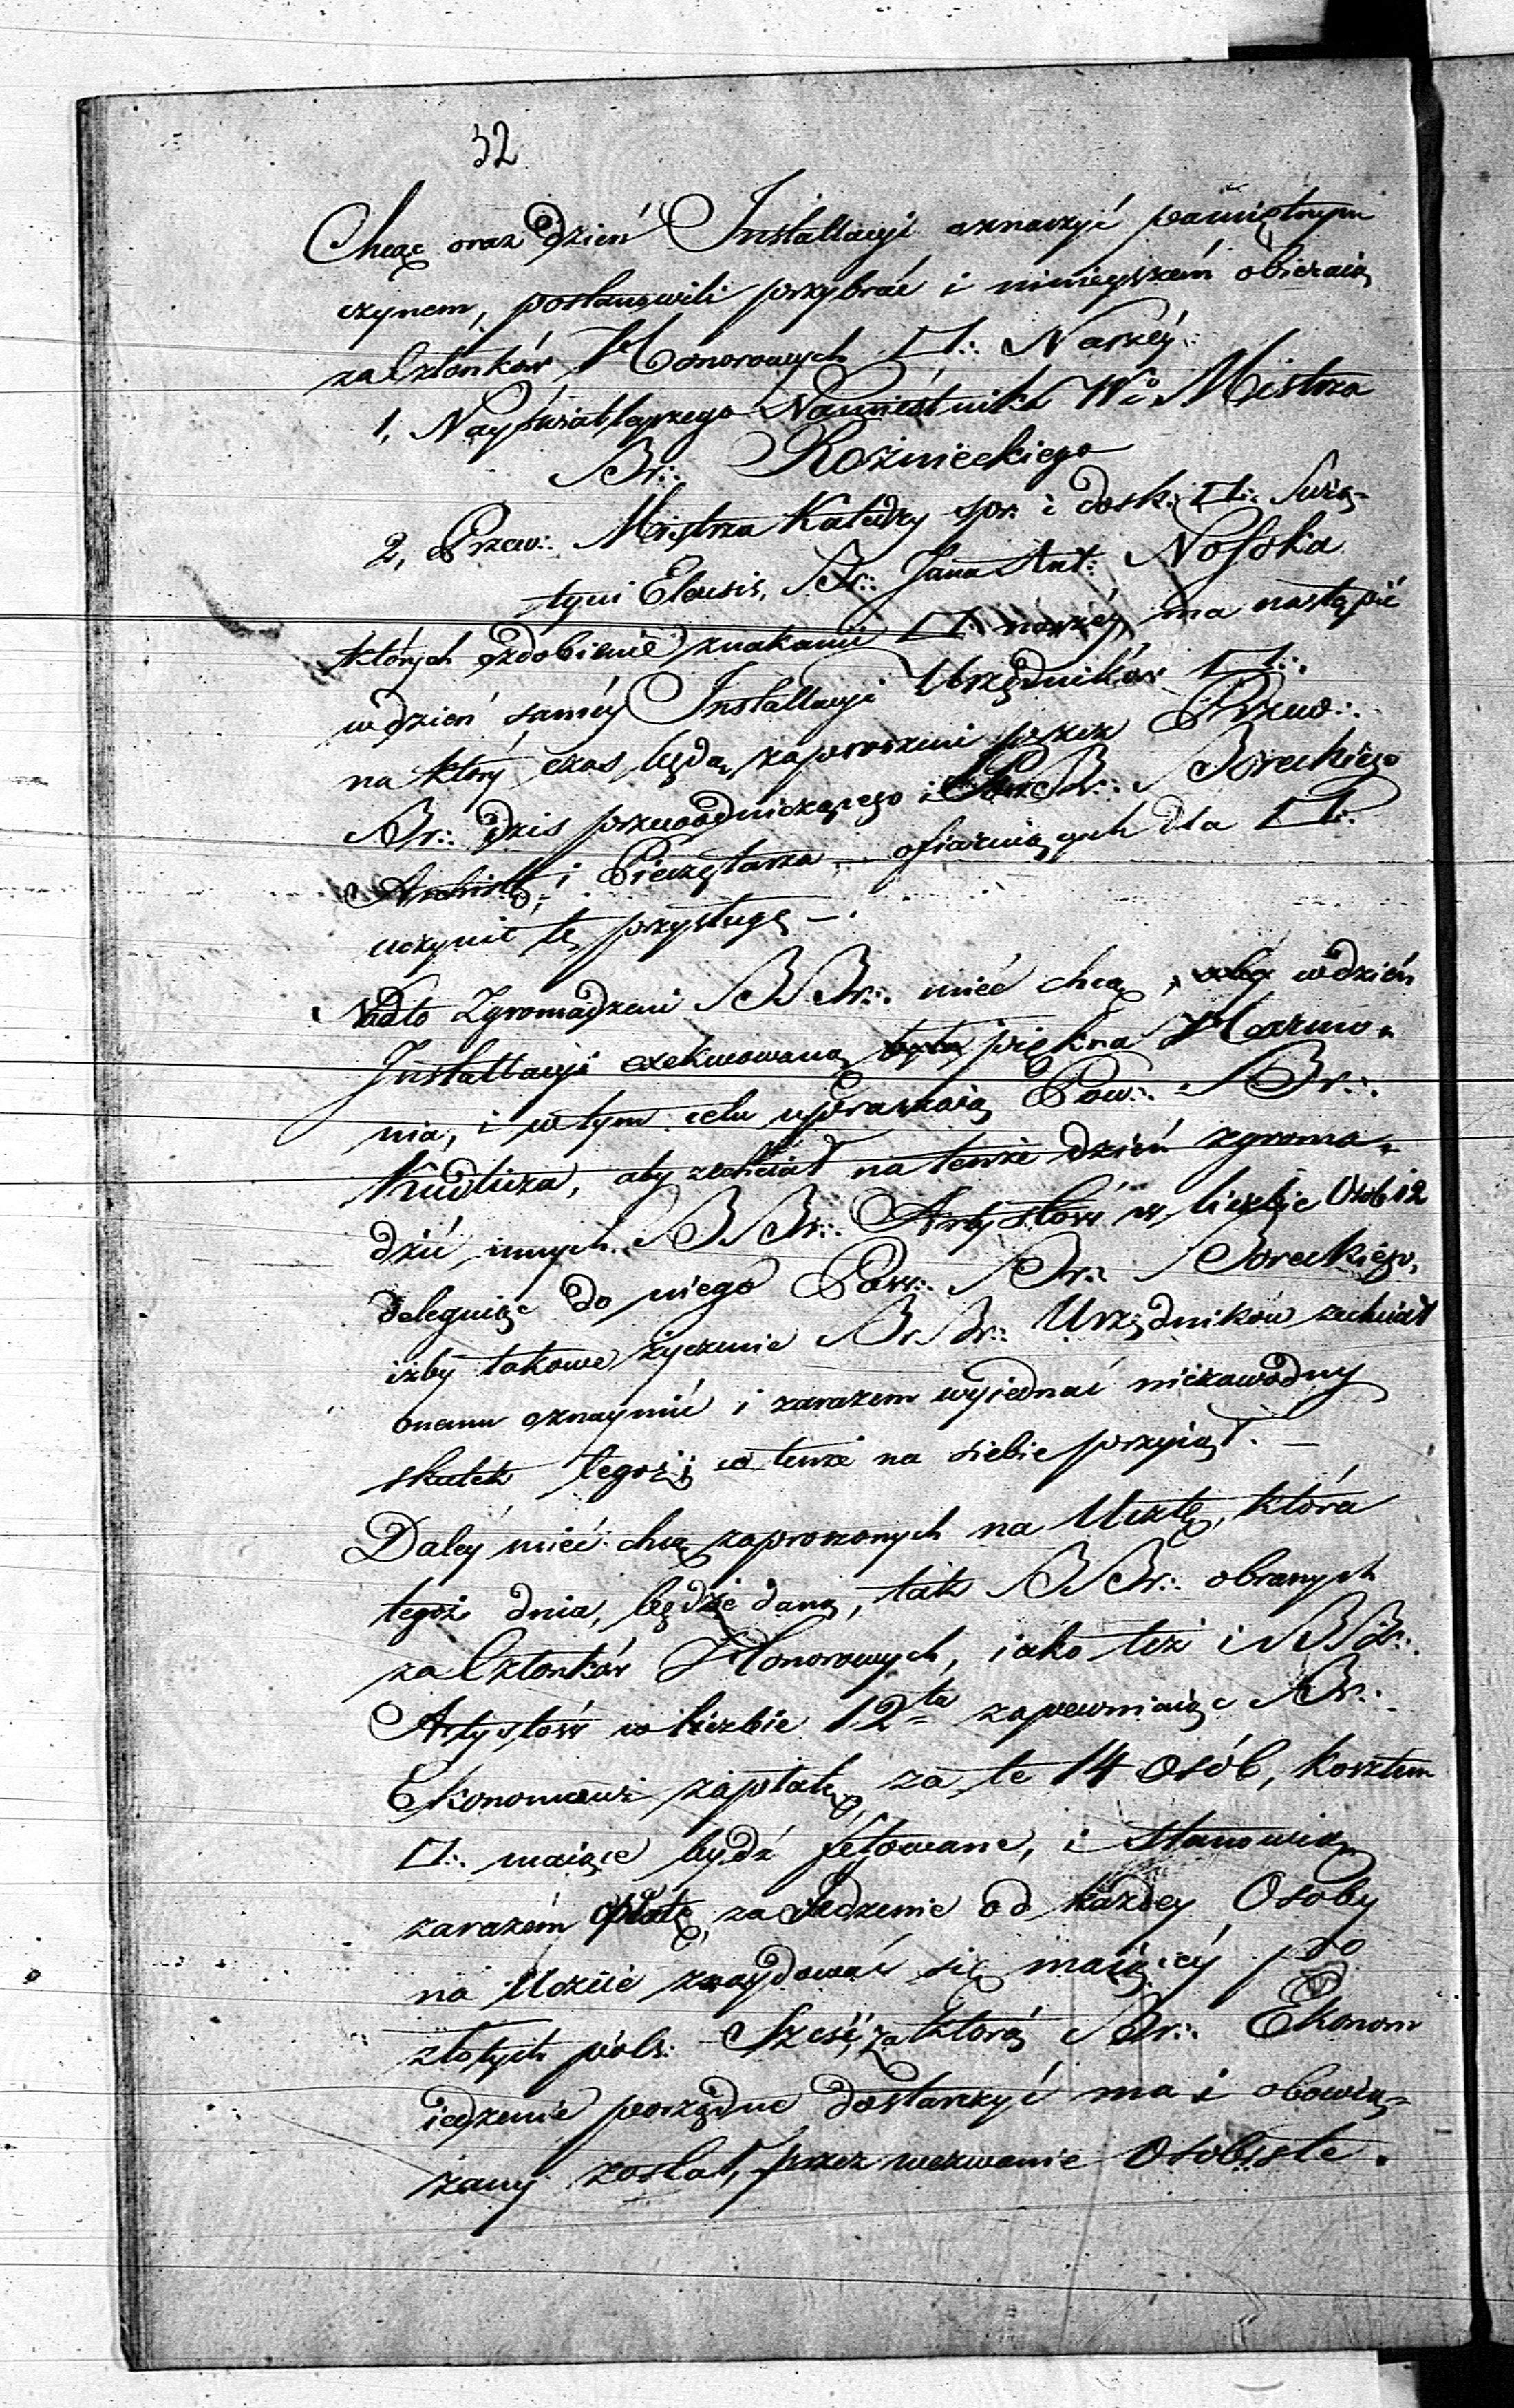 32
Chcąc oraz dzień Installacyi oznaczyć pamiętnym
czynem, postanowili przybrać i ninieyszém obieraią
za Członków Honorowych □∴ Naszéy∴
1, Nayświatleyszego Namiestnika W∴ Mistrza
Br∴ Rożnieckiego
2, Przew∴ Mistrza Katedry spr: i dosk: □∴ Swią-
tyni Eleusis, Br∴ Jana Ant: Nosoka
których ozdobienie znakami □∴ naszéy ma nastąpić
w dzień saméy Installacyi Urzędników □∴
na który czas będą zaproszeni przez Przew∴
Br∴ dziś przewodniczącego i Br∴ Boreckiego
Archist: i Pieczętarza, ofiaruiących dla □∴
uczynić tę przysługę —.
Nadto Zgromadzeni BBr∴ mieć chcą, w dzień
Installacyi exekwowaną piękna Harmo-
nia, i w tym celu upraszaią Pow∴ Br∴
Kudlicza, aby zechciał na tenże dzień zgroma-
dzić innych BBr∴ Artystów w liczbie Osób 12
deleguiąc do niego Pow∴ Br∴ Boreckiego,
iżby takowe życzenie BrBr∴ Urzędników zechciał
onemu oznaymić i zarazem wyiednać niezawodny
skutek tegoż; co tenże na siebie przyiął. —
Daléy mieć chcą zaproszonych na Ucztę, która
tegoż dnia, będzie daną, tak BBr∴ obranych
za Członków Honorowych, iako też i BBr∴
Artystów w liczbie 12tu zapewniaiąc Br∴
Ekonomowi zapłatę, za te 14 osób, kosztem
□∴ maiące bydź fetowane, i stanowią
zarazem opłatę, za Jedzenie od każdey Osoby
na Uczcie znaydować się maiącéy po
złotych pols: Sześć, za którą Br∴ Ekonom
iedzenie porządne dostarczyć ma i obowią-
zany został, przez wezwanie Osobiste.